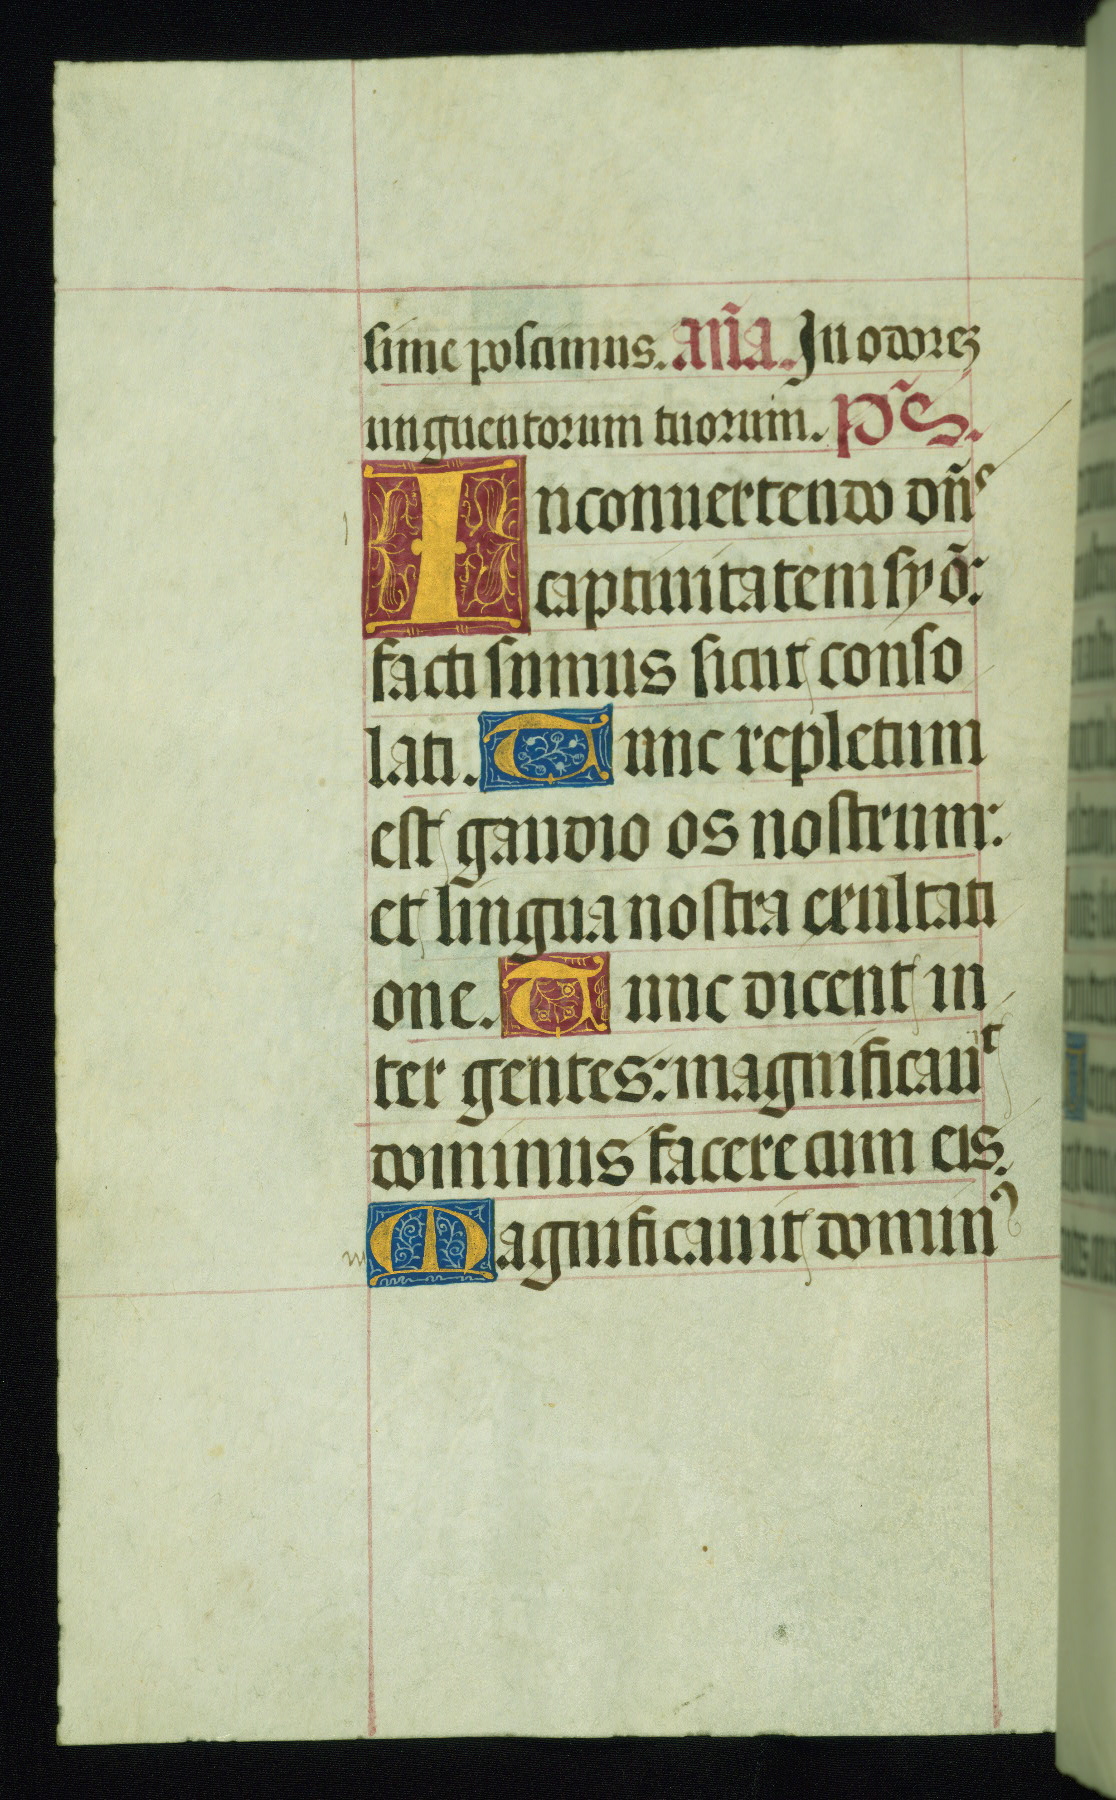 sime poscimus. an̄a. In odorē
unguentorum tuorum. p̄s.
Inconuertendo dn̄s
captiuitatem syō:
facti sumus sicut conso
lati. Tunc repletum
est gaudio os nostrum:
et lingua nostra exultati
one. Tunc dicent in
ter gentes: magnificauit
dominus facere cum eis.
Magnificauit domin⁹